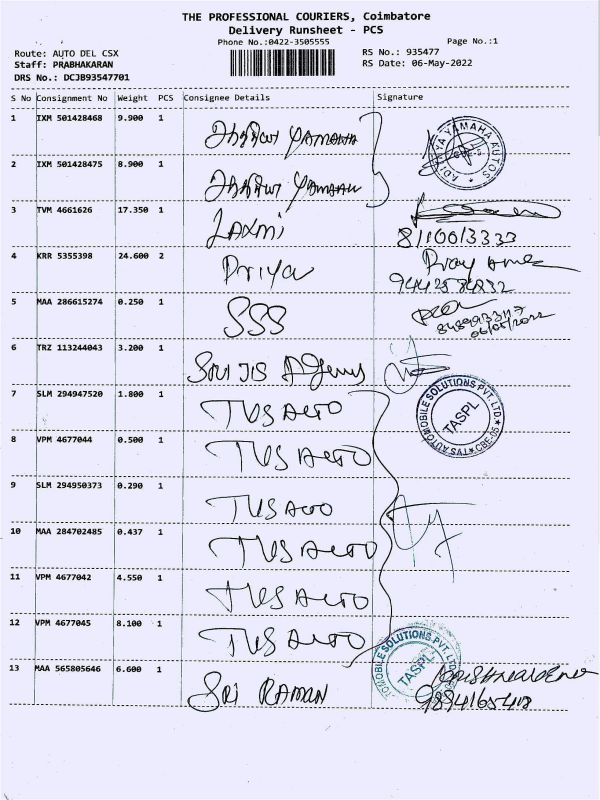 THE PROFESSIONAL COURIERS, Coimbatore
Delivery Runsheet - PCS
Phone No.:0422-3505555
Page No.:1
Route: AUTO DEL CSX
RS No.: 935477
Staff: PRABHAKARAN
RS Date: 06-May-2022
DRS No.: DCJB93547701
S No Consignment No Weight PCS Consignee Details Signature
1 IXM 501428468 9.900 1 YAMAHA
ADITHYA YAMAHA AUTOS
2 IXM 501428475 8.900 1 YAMAHA
3 TVM 4661626 17.350 1 LAXMI
4 KRR 5355398 24.600 2 Priya
5 MAA 286615274 0.250 1 SSS
06/05/2022
6 TRZ 113244043 3.200 1
7 SLM 294947520 1.800 1 TVS AUTO
AUTOMOBILE SOLUTIONS PVT. LTD. TASPL CBE-05
8 VPM 4677044 0.500 1 TVS AUTO
9 SLM 294950373 0.290 1 TVS AUTO
10 MAA 284702485 0.437 1 TVS AUTO
11 VPM 4677042 4.550 1 TVS AUTO
12 VPM 4677045 8.100 1 TVS AUTO
TOMOBILE SOLUTIONS PVT. LTD TASPL
13 MAA 565805646 6.600 1 SRI RAMAN